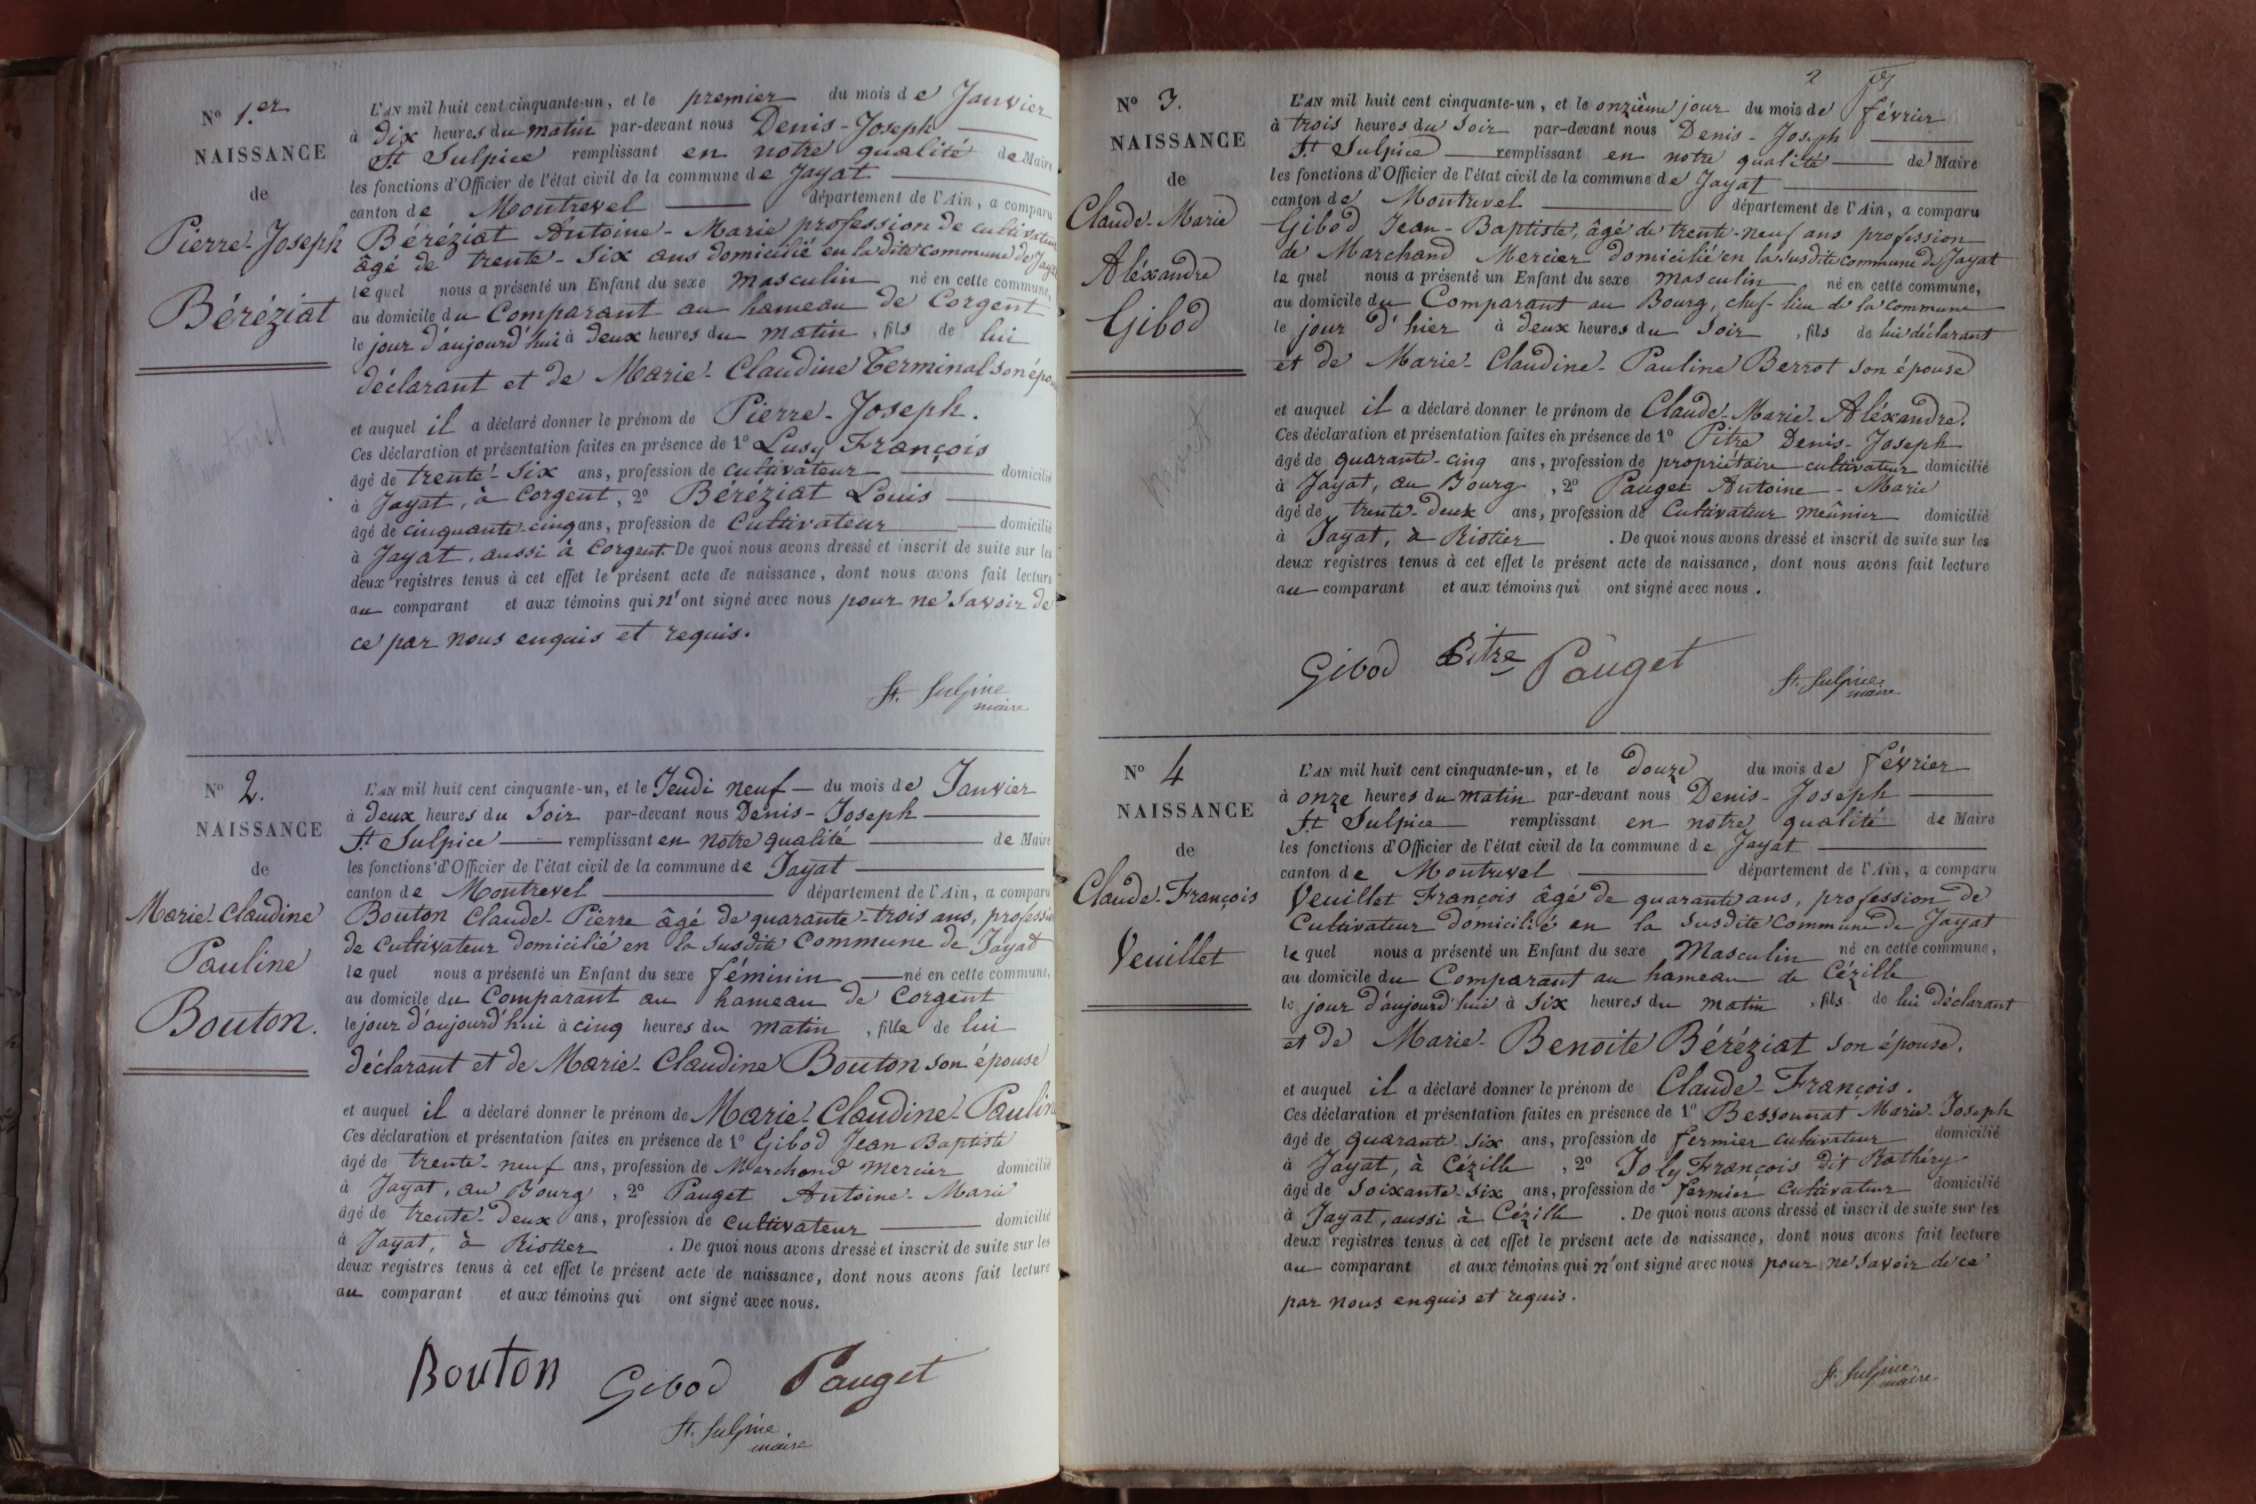 N° 1.er
NAISSANCE
de
Pierre-Joseph
Béréziat
L'AN mil huit cent cinquante-un, et le premier du mois de Janvier
à dix heures du matin par-devant nous Denis-Joseph
St Sulpice remplissant en notre qualité de Maire
les fonctions d'Officier de l'état civil de la commune de Jayat
canton de Montrevel département de l'Ain, a comparu
Béréziat Antoine-Marie profession de cultivateur
âgé de trente-six ans domicilié en la dite commune de Jayat
lequel nous a présenté un Enfant du sexe masculin né en cette commune,
au domicile du Comparant au hameau de Corgent
le jour d'aujourd'hui à deux heures du matin, fils de lui
déclarant et de Marie-Claudine Terminal son épouse
et auquel il a déclaré donner le prénom de Pierre-Joseph.
Ces déclaration et présentation faites en présence de 1° Lusy François
âgé de trente-six ans, profession de cultivateur domicilié
à Jayat, à Corgent, 2° Béréziat Louis
âgé de cinquante-cinq ans, profession de cultivateur domicilié
à Jayat, aussi à Corgent. De quoi nous avons dressé et inscrit de suite sur les
deux registres tenus à cet effet le présent acte de naissance, dont nous avons fait lecture
au comparant et aux témoins qui n'ont signé avec nous pour ne savoir de
ce par nous enquis et requis.
St. Sulpice
maire
N° 2.
NAISSANCE
de
Marie-Claudine
Pauline
Bouton.
L'AN mil huit cent cinquante-un, et le Jeudi neuf du mois de Janvier
à deux heures du Soir par-devant nous Denis-Joseph
St Sulpice remplissant en notre qualité de Maire
les fonctions d'Officier de l'état civil de la commune de Jayat
canton de Montrevel département de l'Ain, a comparu
Bouton Claude-Pierre âgé de quarante-trois ans, profession
de cultivateur domicilié en la susdite Commune de Jayat
lequel nous a présenté un Enfant du sexe féminin né en cette commune,
au domicile du Comparant au hameau de Corgent
le jour d'aujourd'hui à cinq heures du matin, fille de lui
déclarant et de Marie-Claudine Bouton son épouse
et auquel il a déclaré donner le prénom de Marie-Claudine-Paulin
Ces déclaration et présentation faites en présence de 1° Gibod Jean Baptiste
âgé de trente-neuf ans, profession de Marchand mercier domicilié
à Jayat, au Bourg, 2° Pauget Antoine-Marie
âgé de trente-deux ans, profession de cultivateur domicilié
à Jayat, à Riotier. De quoi nous avons dressé et inscrit de suite sur les
deux registres tenus à cet effet le présent acte de naissance, dont nous avons fait lecture
au comparant et aux témoins qui ont signé avec nous.
Bouton Gibod Pauget
St. Sulpice
maire
2
N° 3.
NAISSANCE
de
Claude-Marie
Aléxandre
Gibod
mort
L'AN mil huit cent cinquante-un, et le onzième jour du mois de février
à trois heures du Soir par-devant nous Denis-Joseph
St Sulpice remplissant en notre qualité de Maire
les fonctions d'Officier de l'état civil de la commune de Jayat
canton de Montrevel département de l'Ain, a comparu
Gibod Jean-Baptiste, âgé de trente-neuf ans profession
de Marchand Mercier domicilié en la susdite commune de Jayat
lequel nous a présenté un Enfant du sexe masculin né en cette commune,
au domicile du Comparant au Bourg, chef-lieu de la commune
le jour d'hier à deux heures du Soir, fils de lui déclarant
et de Marie-Claudine-Pauline Berrot son épouse
et auquel il a déclaré donner le prénom de Claude-Marie-Aléxandre.
Ces déclaration et présentation faites en présence de 1° Pitre Denis-Joseph
âgé de quarante-cinq ans, profession de propriétaire cultivateur domicilié
à Jayat, au Bourg, 2° Pauget Antoine-Marie
âgé de trente-deux ans, profession de Cultivateur meûnier domicilié
à Jayat, à Riotier. De quoi nous avons dressé et inscrit de suite sur les
deux registres tenus à cet effet le présent acte de naissance, dont nous avons fait lecture
au comparant et aux témoins qui ont signé avec nous.
Gibod Pitre Pauget
St. Sulpice
maire
N° 4
NAISSANCE
de
Claude-François
Veuillet
L'AN mil huit cent cinquante-un, et le douze du mois de février
à onze heures du matin par-devant nous Denis-Joseph
St Sulpice remplissant en notre qualité de Maire
les fonctions d'Officier de l'état civil de la commune de Jayat
canton de Montrevel département de l'Ain, a comparu
Veuillet François âgé de quarante ans, profession de
Cultivateur domicilié en la susdite Commune de Jayat
lequel nous a présenté un Enfant du sexe Masculin né en cette commune,
au domicile du Comparant au hameau de Cézille
le jour d'aujourd'hui à six heures du matin, fils de lui déclarant
et de Marie-Benoite Béréziat son épouse.
et auquel il a déclaré donner le prénom de Claude-François.
Ces déclaration et présentation faites en présence de 1° Bessonnat Marie-Joseph
âgé de quarante-six ans, profession de fermier cultivateur domicilié
à Jayat, à Cézille, 2° Joly François dit Rathéry
âgé de soixante-six ans, profession de fermier cultivateur domicilié
à Jayat, aussi à Cézille. De quoi nous avons dressé et inscrit de suite sur les
deux registres tenus à cet effet le présent acte de naissance, dont nous avons fait lecture
au comparant et aux témoins qui n'ont signé avec nous pour ne savoir de ce
par nous enquis et requis.
St. Sulpice
maire